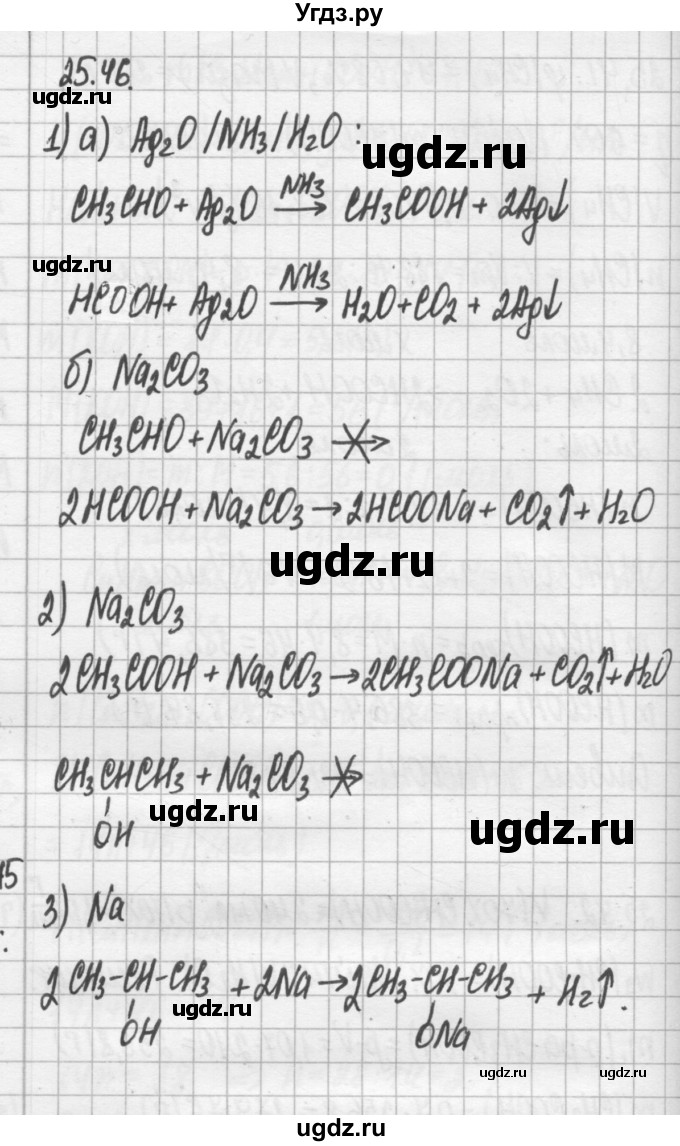 Угдз.ру
25.46.
ugdz.ru
1) а) Ag2O/NH3/H2O:
ugdz.ru
CH3CHO + Ag2O NH3→ CH3COOH + 2Ag↓
ugdz.ru
HCOOH + Ag2O NH3→ H2O + CO2 + 2Ag↓
б) Na2CO3
CH3CHO + Na2CO3 ↛
2HCOOH + Na2CO3 → 2HCOONa + CO2↑ + H2O
ugdz.ru
2) Na2CO3
2CH3COOH + Na2CO3 → 2CH3COONa + CO2↑ + H2O
CH3CHCH3 + Na2CO3 ↛
OH
ugdz.ru
ugdz.ru
3) Na
2CH3-CH-CH3 + 2Na → 2CH3-CH-CH3 + H2↑.
OH ONa
ugdz.ru
ugdz.ru
ugdz.ru
ugdz.ru